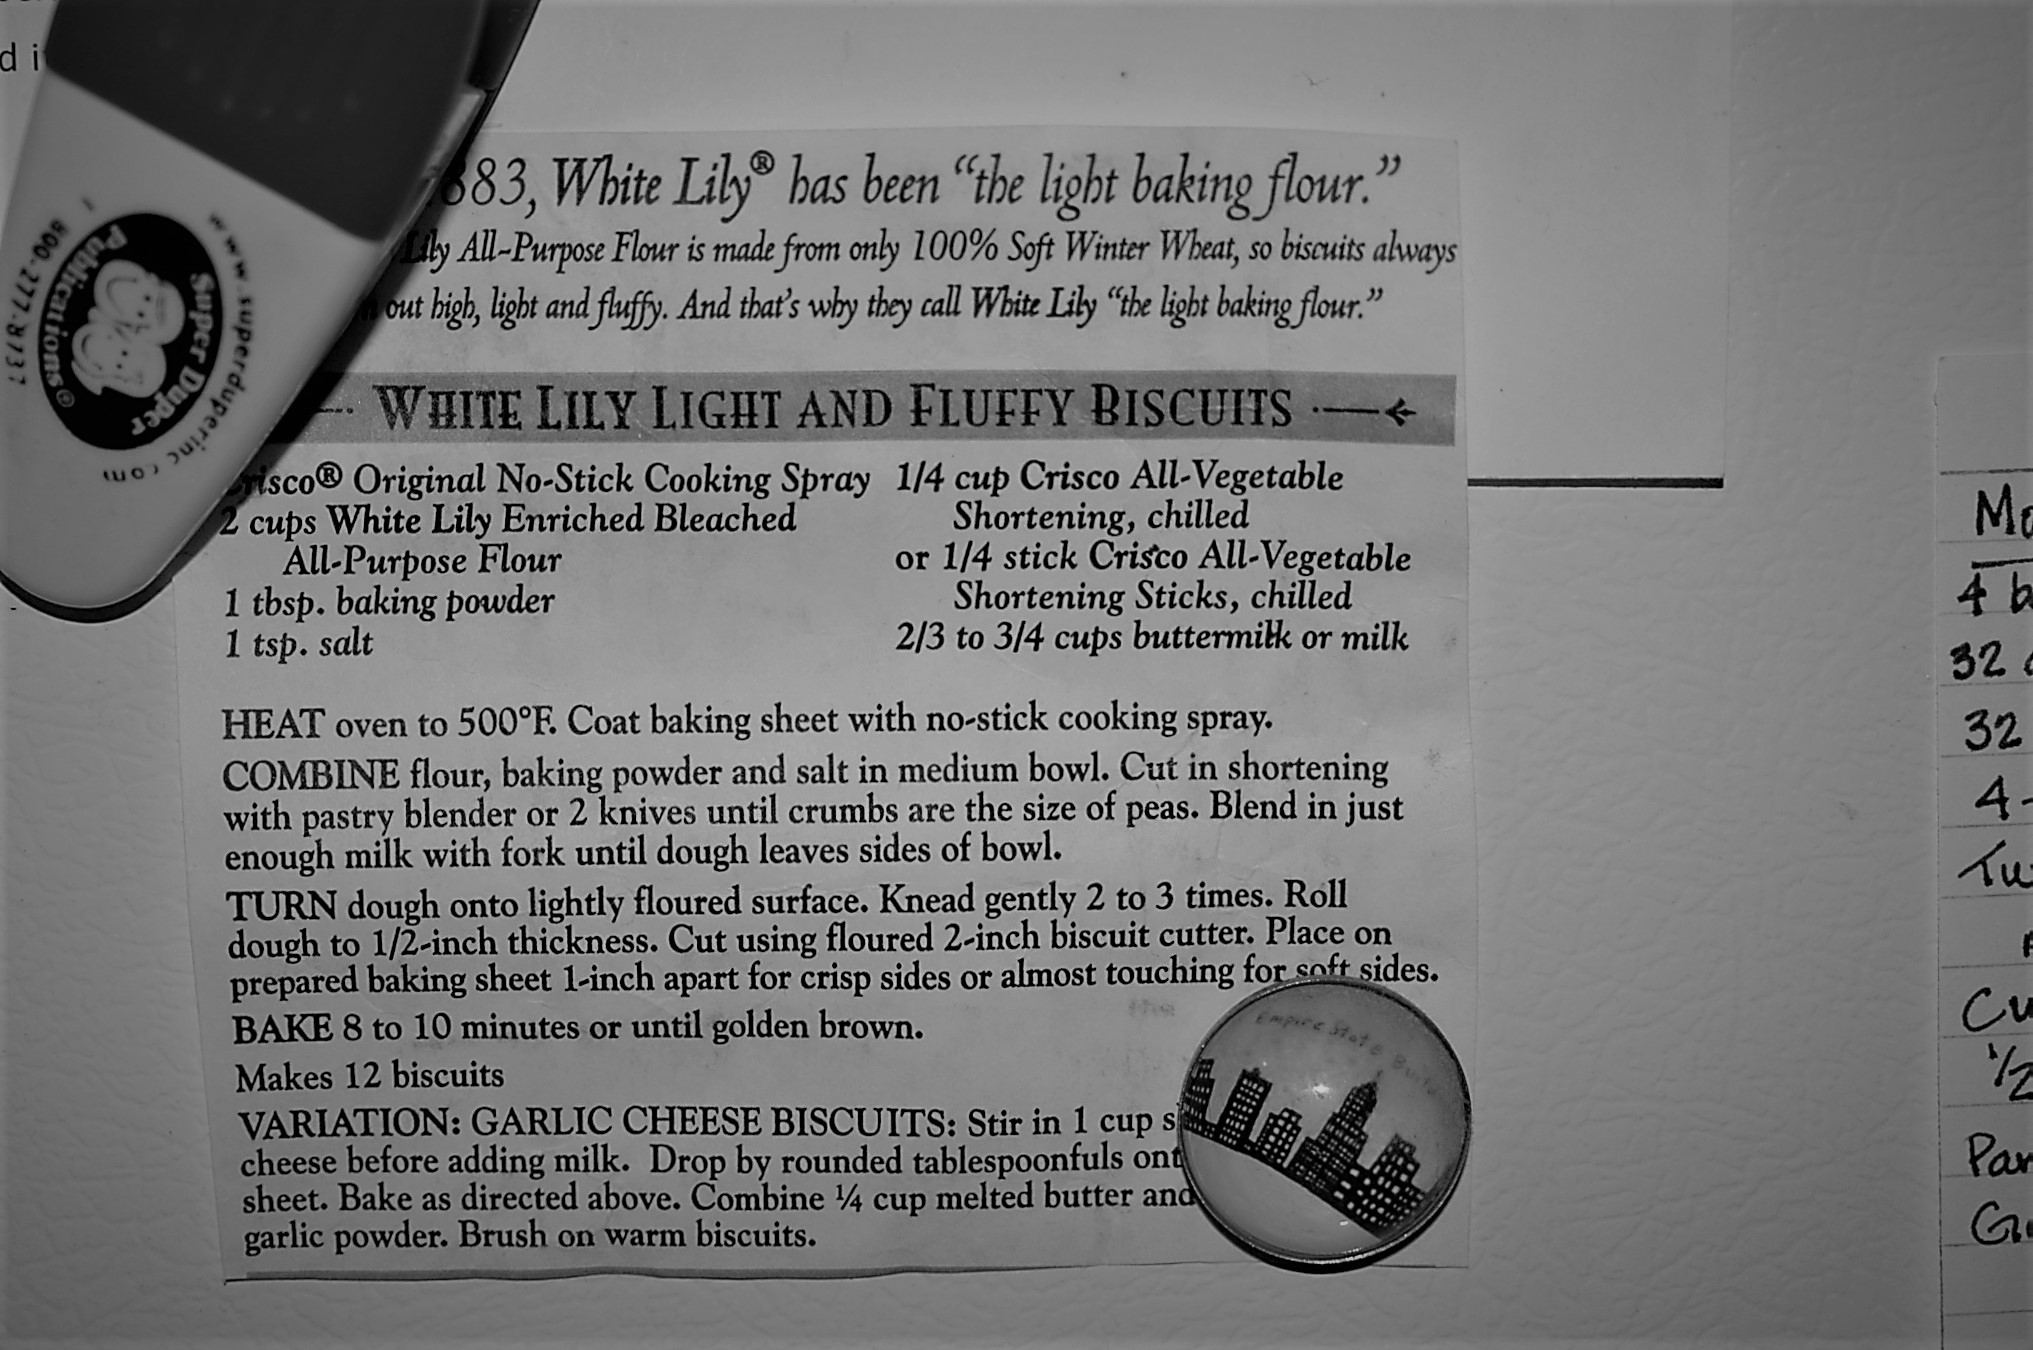 d i
883, White Lily® has been “the light baking flour.”
Lily All-Purpose Flour is made from only 100% Soft Winter Wheat, so biscuits always
out high, light and fluffy. And that's why they call White Lily “the light baking flour.”
WHITE LILY LIGHT AND FLUFFY BISCUITS
Crisco® Original No-Stick Cooking Spray
2 cups White Lily Enriched Bleached
All-Purpose Flour
1 tbsp. baking powder
1 tsp. salt
1/4 cup Crisco All-Vegetable
Shortening, chilled
or 1/4 stick Crisco All-Vegetable
Shortening Sticks, chilled
2/3 to 3/4 cups buttermilk or milk
HEAT oven to 500°F. Coat baking sheet with no-stick cooking spray.
COMBINE flour, baking powder and salt in medium bowl. Cut in shortening
with pastry blender or 2 knives until crumbs are the size of peas. Blend in just
enough milk with fork until dough leaves sides of bowl.
TURN dough onto lightly floured surface. Knead gently 2 to 3 times. Roll
dough to 1/2-inch thickness. Cut using floured 2-inch biscuit cutter. Place on
prepared baking sheet 1-inch apart for crisp sides or almost touching for soft sides.
BAKE 8 to 10 minutes or until golden brown.
Makes 12 biscuits
VARIATION: GARLIC CHEESE BISCUITS: Stir in 1 cup s
cheese before adding milk. Drop by rounded tablespoonfuls ont
sheet. Bake as directed above. Combine ¼ cup melted butter and
garlic powder. Brush on warm biscuits.
Empire State Build
www.superduperinc.com
Super Duper
Publications®
1 800-277-8737
Mo
4 b
32
32
4-
Tu
Cu
1/2
Par